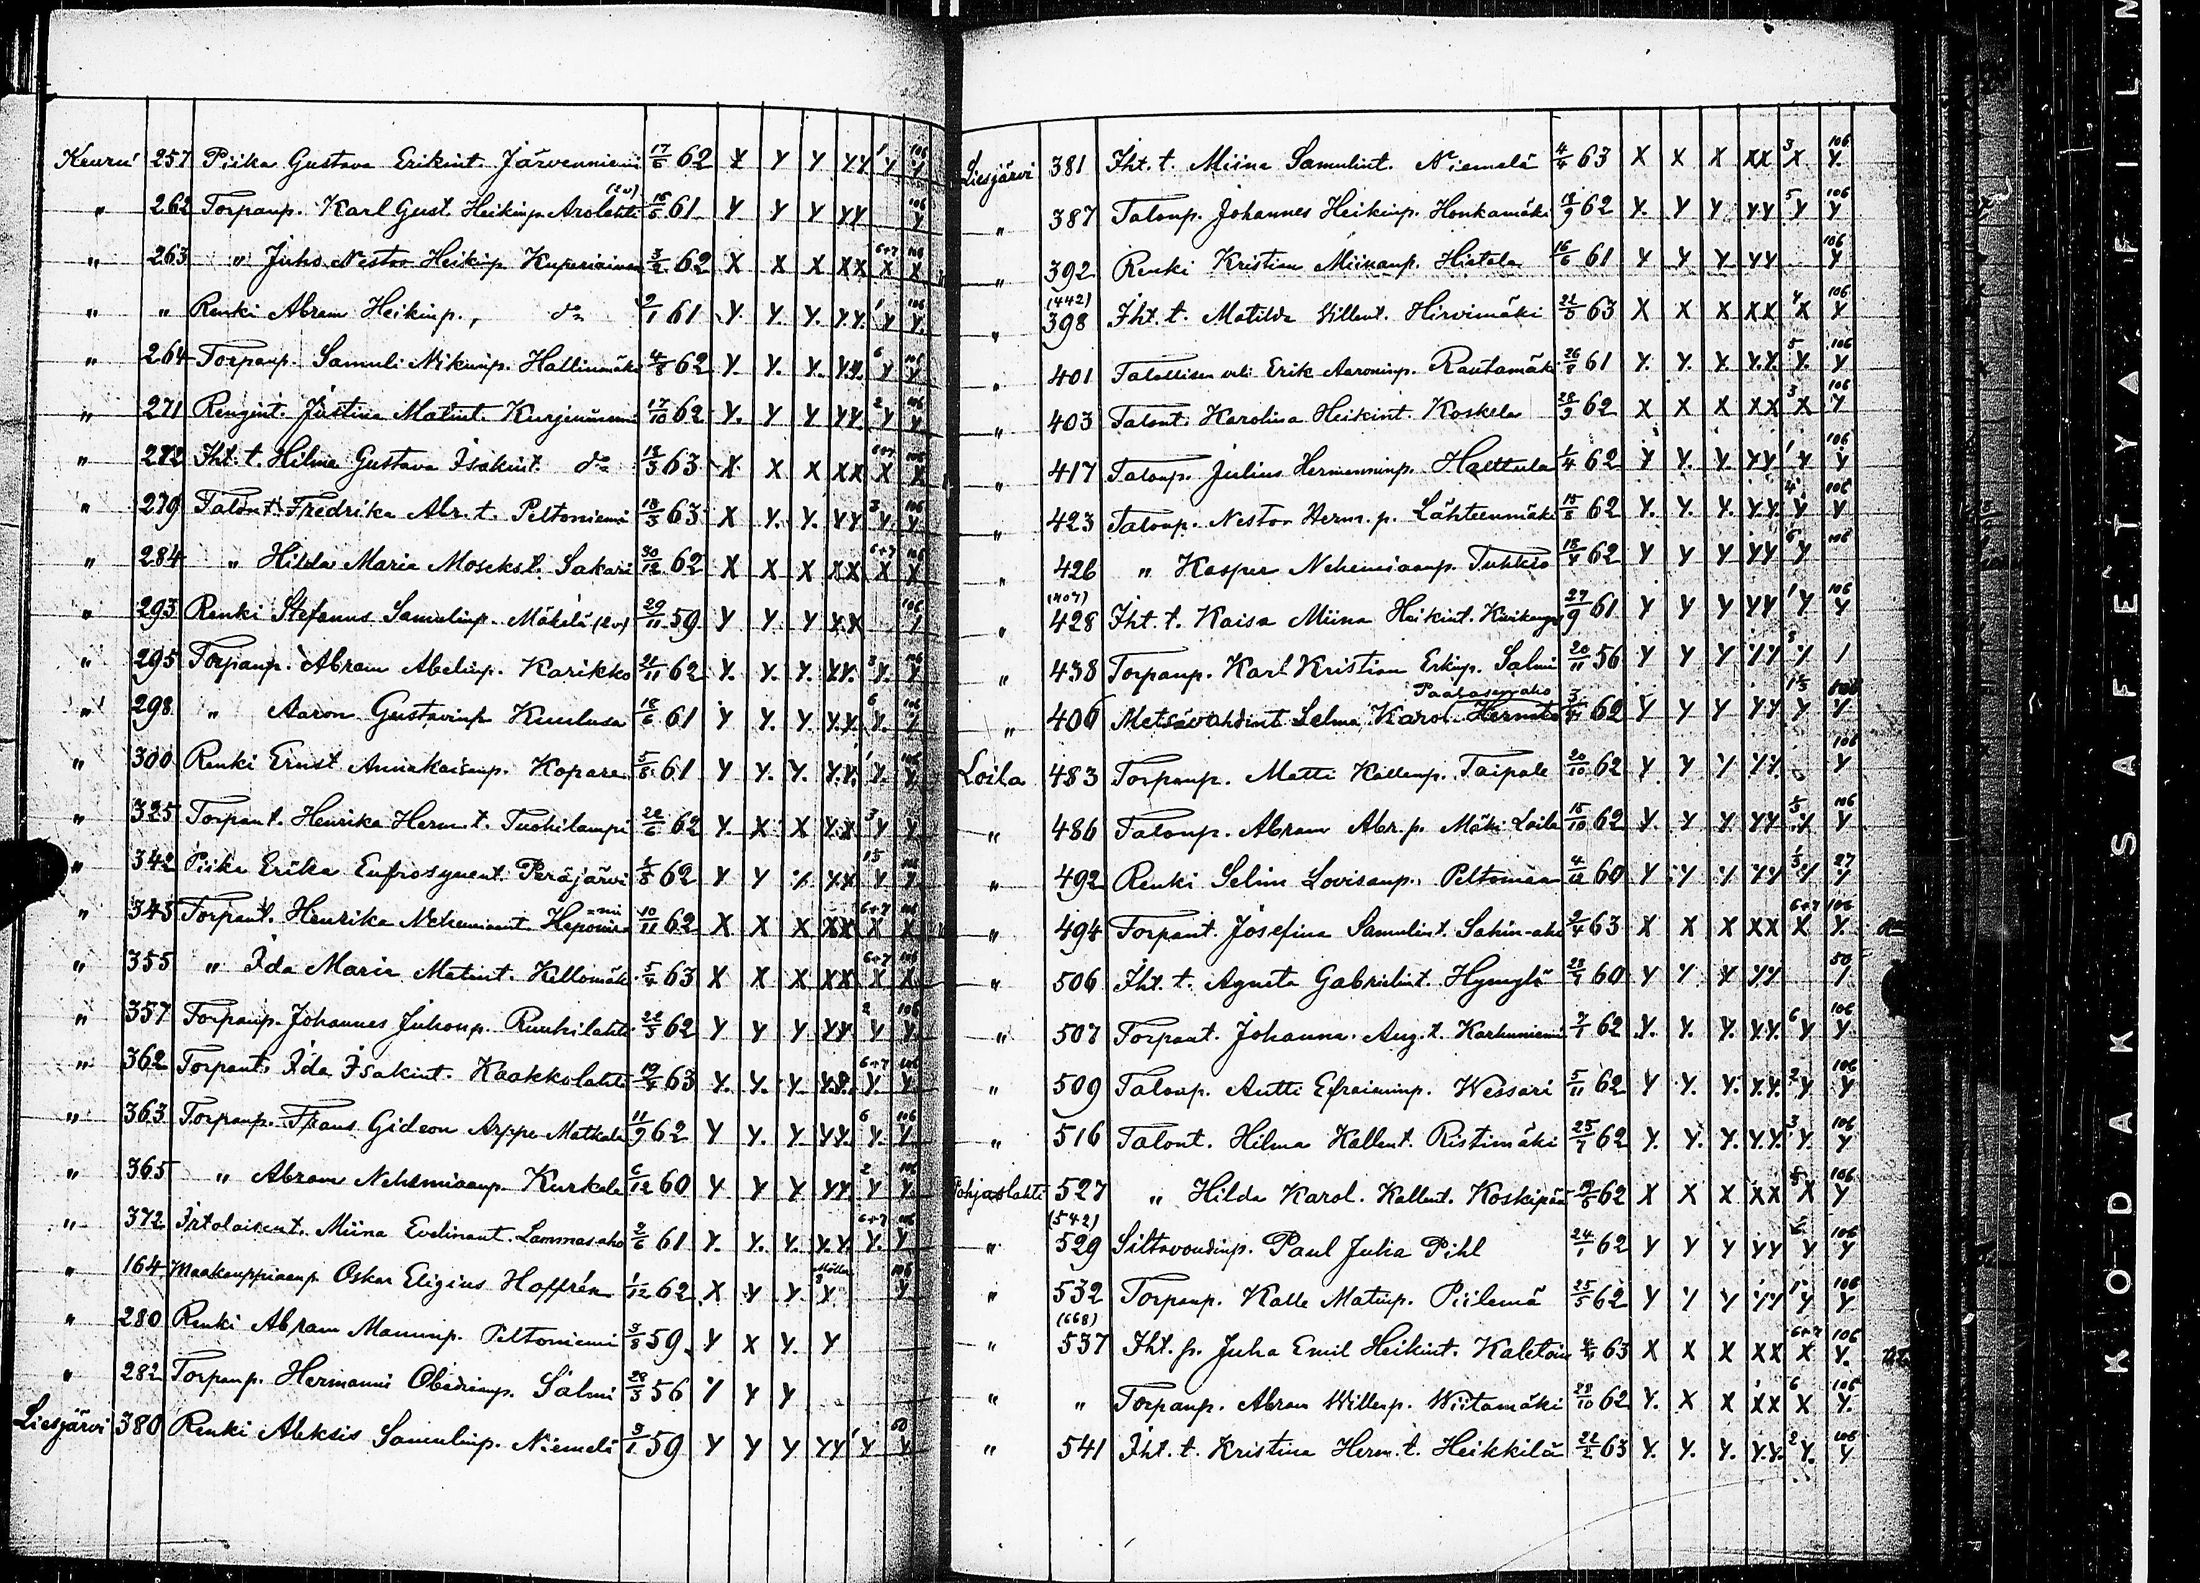 Keuruu 257 Piika Gustava Erikint. Järvenniemi 17/6 62 X Y Y YY 1 Y 106 Y
" 262 Torpanp. Karl Gust. Heikinp. Arolahti (2v) 15/5 61 Y Y Y YY 106 Y
" 263 " Juho Nestor Heikinp. Kuperiainen 3/2 62 X X X XX 6+7 X 106 X
" " Renki Abram Heikinp., d:o 9/1 61 Y. Y. Y. YY. 1 Y 106 Y.
" 264 Torpanp. Samuli Nikunp. Hallinmäki 4/8 62 Y. Y. Y. YY. 6 Y 106 Y
" 271 Rengint. Justina Matint. Kurjenniemi 17/10 62 Y. Y Y YY. 2 Y 106 Y
" 272 Iht. t. Hilma Gustava Isakint. d:o 12/3 63 X. X X XX 6+7 X 106 X
" 279 Talont. Fredrika Abr. t. Peltoniemi 18/3 63 X Y. Y. YY 3 Y. 106 Y
" 284 " Hilda Maria Mosekst. Sakari 30/12 62 X X X XX 6+7 X 106 X
" 293 Renki Stefanus Samulinp. Mäkelä (2v) 29/11 59 Y Y Y YX 106 Y
" 295 Torpanp. Abram Abelinp. Karikko 21/11 62 Y. Y. Y. YY. 3 Y. 106 Y
" 298 " Aaron Gustavinp. Kuulusa 18/6 61 Y Y. Y. YY. 6 Y. 106 Y
" 300 Renki Ernst Annakaisanp. Kopare 5/8 61 Y Y. Y. YY. 1 Y. 106 Y
" 325 Torpant. Henrika Herm. t. Tuohilampi 22/6 62 Y. X X YX 3 Y Y
" 342 Piika Erika Eufrosynent. Peräjärvi 5/8 62 Y Y Y YX 15 Y 106 Y
" 345 Torpant. Henrika Nehemiaant. Heponiemi 10/11 62 X X X XX 6+7 X 106 X
" 355 " Ida Maria Matint. Kellomäki 5/4 63 X X X XX 6+7 X 106 X
" 357 Torpanp. Johannes Juhonp. Ruuhilahti 22/3 62 Y Y Y YY 2 Y 106 Y.
" 362 Torpant. Ida Isakint. Kaakkolahti 19/4 63 Y. Y. Y. YY. 6+7 Y. 106 Y.
" 363 Torpanp. Frans Gideon Arppe Matkala 11/9 62 Y Y. Y. YY. 6 Y. 106 Y.
" 365 " Abram Nehemiaanp. Kurkela 6/12 60 Y Y Y YY. 2 Y 106 Y.
" 372 Irtolaisent. Miina Evelinant. Lammasaho 2/6 61 Y. Y. Y. YY. 6+7 Y. 106 Y
" 164 Maakauppiaanp. Oskar Eligius Hoffrén 1/12 62 X Y Y. Y 106 Y.
" 280 Renki Abram Mannup. Peltoniemi 3/8 59 Y X Y. Y
" 282 Torpanp. Hermanni Obadianp. Salmi 28/3 56 Y Y Y
Liesjärvi 380 Renki Aleksis Samulinp. Niemelä 3/1 59 Y Y Y YY 1 Y 50 Y
Liesjärvi 381 Iht. t. Miina Samulint. Niemelä 4/4 63 X X X XX 3 X 106 Y.
" 387 Talonp. Johannes Heikinp. Honkamäki 12/9 62 Y. Y Y YY 5 Y 106 Y
" 392 Renki Kristian Miinanp. Hietala 16/6 61 Y Y. Y. YY. 106 Y
" (442) 398 Iht. t. Matilda Villent. Hirvimäki 21/5 63 X X X XX 4 X 106 Y
" 401 Talollisen veli Erik Aaroninp. Rautamäki 26/8 61 Y. Y. Y. YY. 5 Y. 106 Y
" 403 Talont. Karolina Heikint. Koskela 28/9 62 X X X XX 3 X 106 Y
" 417 Talonp. Julius Hermanninp. Halttula 1/4 62 Y Y. Y. YY 1 Y 106 Y
" 423 Talonp. Nestor Herm. p. Lähteenmäki 15/8 62 Y. Y. Y. YY. 4 Y 106 Y
" 426 " Kasper Nehemiaanp. Tuhkio 18/4 62 Y Y Y YY 6 Y 106
" (407) 428 Iht. t. Kaisa Miina Heikint. Kivikangas 27/9 61 Y Y Y YY 1 Y 106 Y
" 438 Torpanp. Karl Kristian Erkinp. Salmi 20/11 56 Y Y Y YY 8 Y 1
" 406 Metsävahdint. Selma Karol. Paatasenaho 3/4 62 Y Y Y YY 15 Y 106 Y
Loila 483 Torpanp. Matti Kallenp. Taipale 20/10 62 Y Y Y YY 106 Y
" 486 Talonp. Abram Abr. p. Mäki-Loila 15/10 62 Y. Y Y YY 5 Y 106 Y
" 492 Renki Selim Lovisanp. Peltomaa 4/12 60 Y Y Y YY Y 27 Y
" 494 Torpant. Josefina Samulint. Sahin-aho 2/4 63 X X X XX 6+7 X 106 Y.
" 506 Iht. t. Agneta Gabrielint. Hyngylä 28/7 60 Y Y X YY 50 Y
" 507 Torpant. Johanna Aug. t. Karhuniemi 7/1 62 Y. Y. Y. YY. 6 Y 106 Y
" 509 Talonp. Antti Efraiminp. Wessari 5/11 62 Y Y. Y. YY. 2 Y 106 Y
" 516 Talont. Hilma Kallent. Ristimäki 25/7 62 Y. Y. Y. YY. 3 Y. 106 Y
Pohjoslahti 527 " Hilda Karol. Kallent. Koskipää 9/8 62 X X X XX 8 X 106 Y
" (542) 529 Siltavoudinp. Paul Juha Pihl 24/1 62 Y Y Y YY 6 Y 106 Y
" 532 Torpanp. Kalle Matinp. Piilemä 25/5 62 Y Y Y YY 1 Y 106 Y
" (668) 537 Iht. p. Juha Emil Heikint. Kaleton 4/4 63 X X X XX 6+7 X 106 Y.
" " Torpanp. Abram Willenp. Wiitamäki 28/10 62 Y. X X XX 6 X 106 Y.
" 541 Iht. t. Kristina Herm. t. Heikkilä 22/2 63 Y. Y. Y. YY. 2 Y. 106 Y
KODAK SAFETY FILM